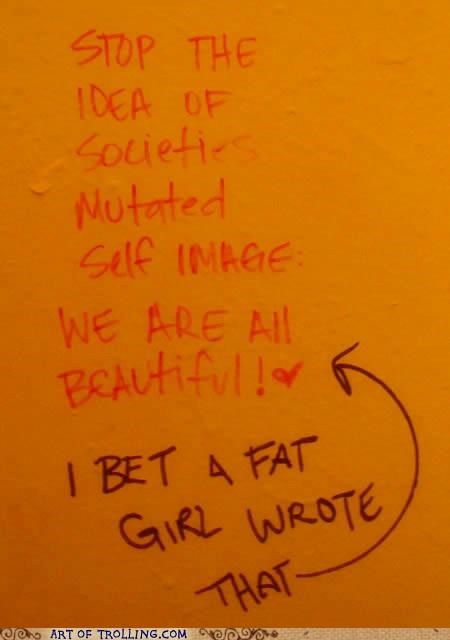 STOP THE
IDEA OF
Societies
Mutated
Self IMAGE:
WE ARE All
BEAutiful!♥
I BET A FAT
GIRL WROTE
THAT
ART OF TROLLING.COM